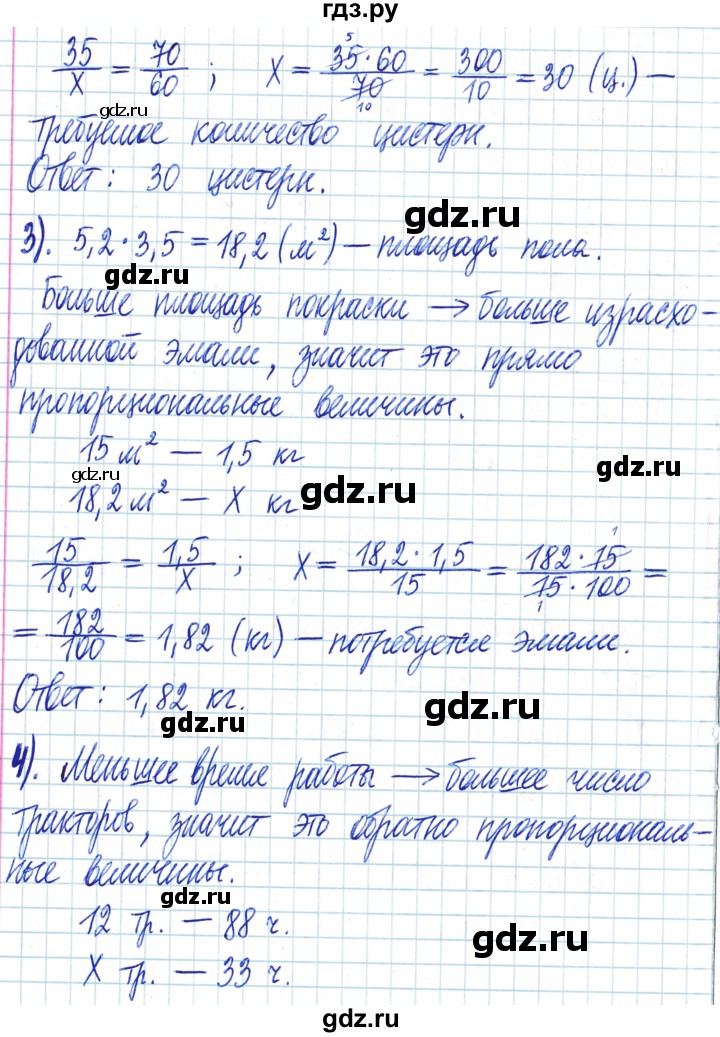 гдз.ру
35/x = 70/60 ; x = 35·60/70 = 300/10 = 30 (ц.) —
5
10
gdz.ru
требуемое количество цистерн.
Ответ: 30 цистерн.
gdz.ru
3). 5,2·3,5 = 18,2 (м²) — площадь пола.
gdz.ru
Больше площадь покраски → больше израсхо-
дованной эмали, значит это прямо
пропорциональные величины.
15 м² — 1,5 кг
gdz.ru
gdz.ru
18,2 м² — x кг
gdz.ru
15/18,2 = 1,5/x ; x = 18,2·1,5/15 = 182·15/15·100 =
1
1
= 182/100 = 1,82 (кг) — потребуется эмали.
Ответ: 1,82 кг.
gdz.ru
gdz.ru
4). Меньшее время работы → большее число
тракторов, значит это обратно пропорциональ-
ные величины.
gdz.ru
12 тр. — 88 ч.
gdz.ru
x тр. — 33 ч.
gdz.ru